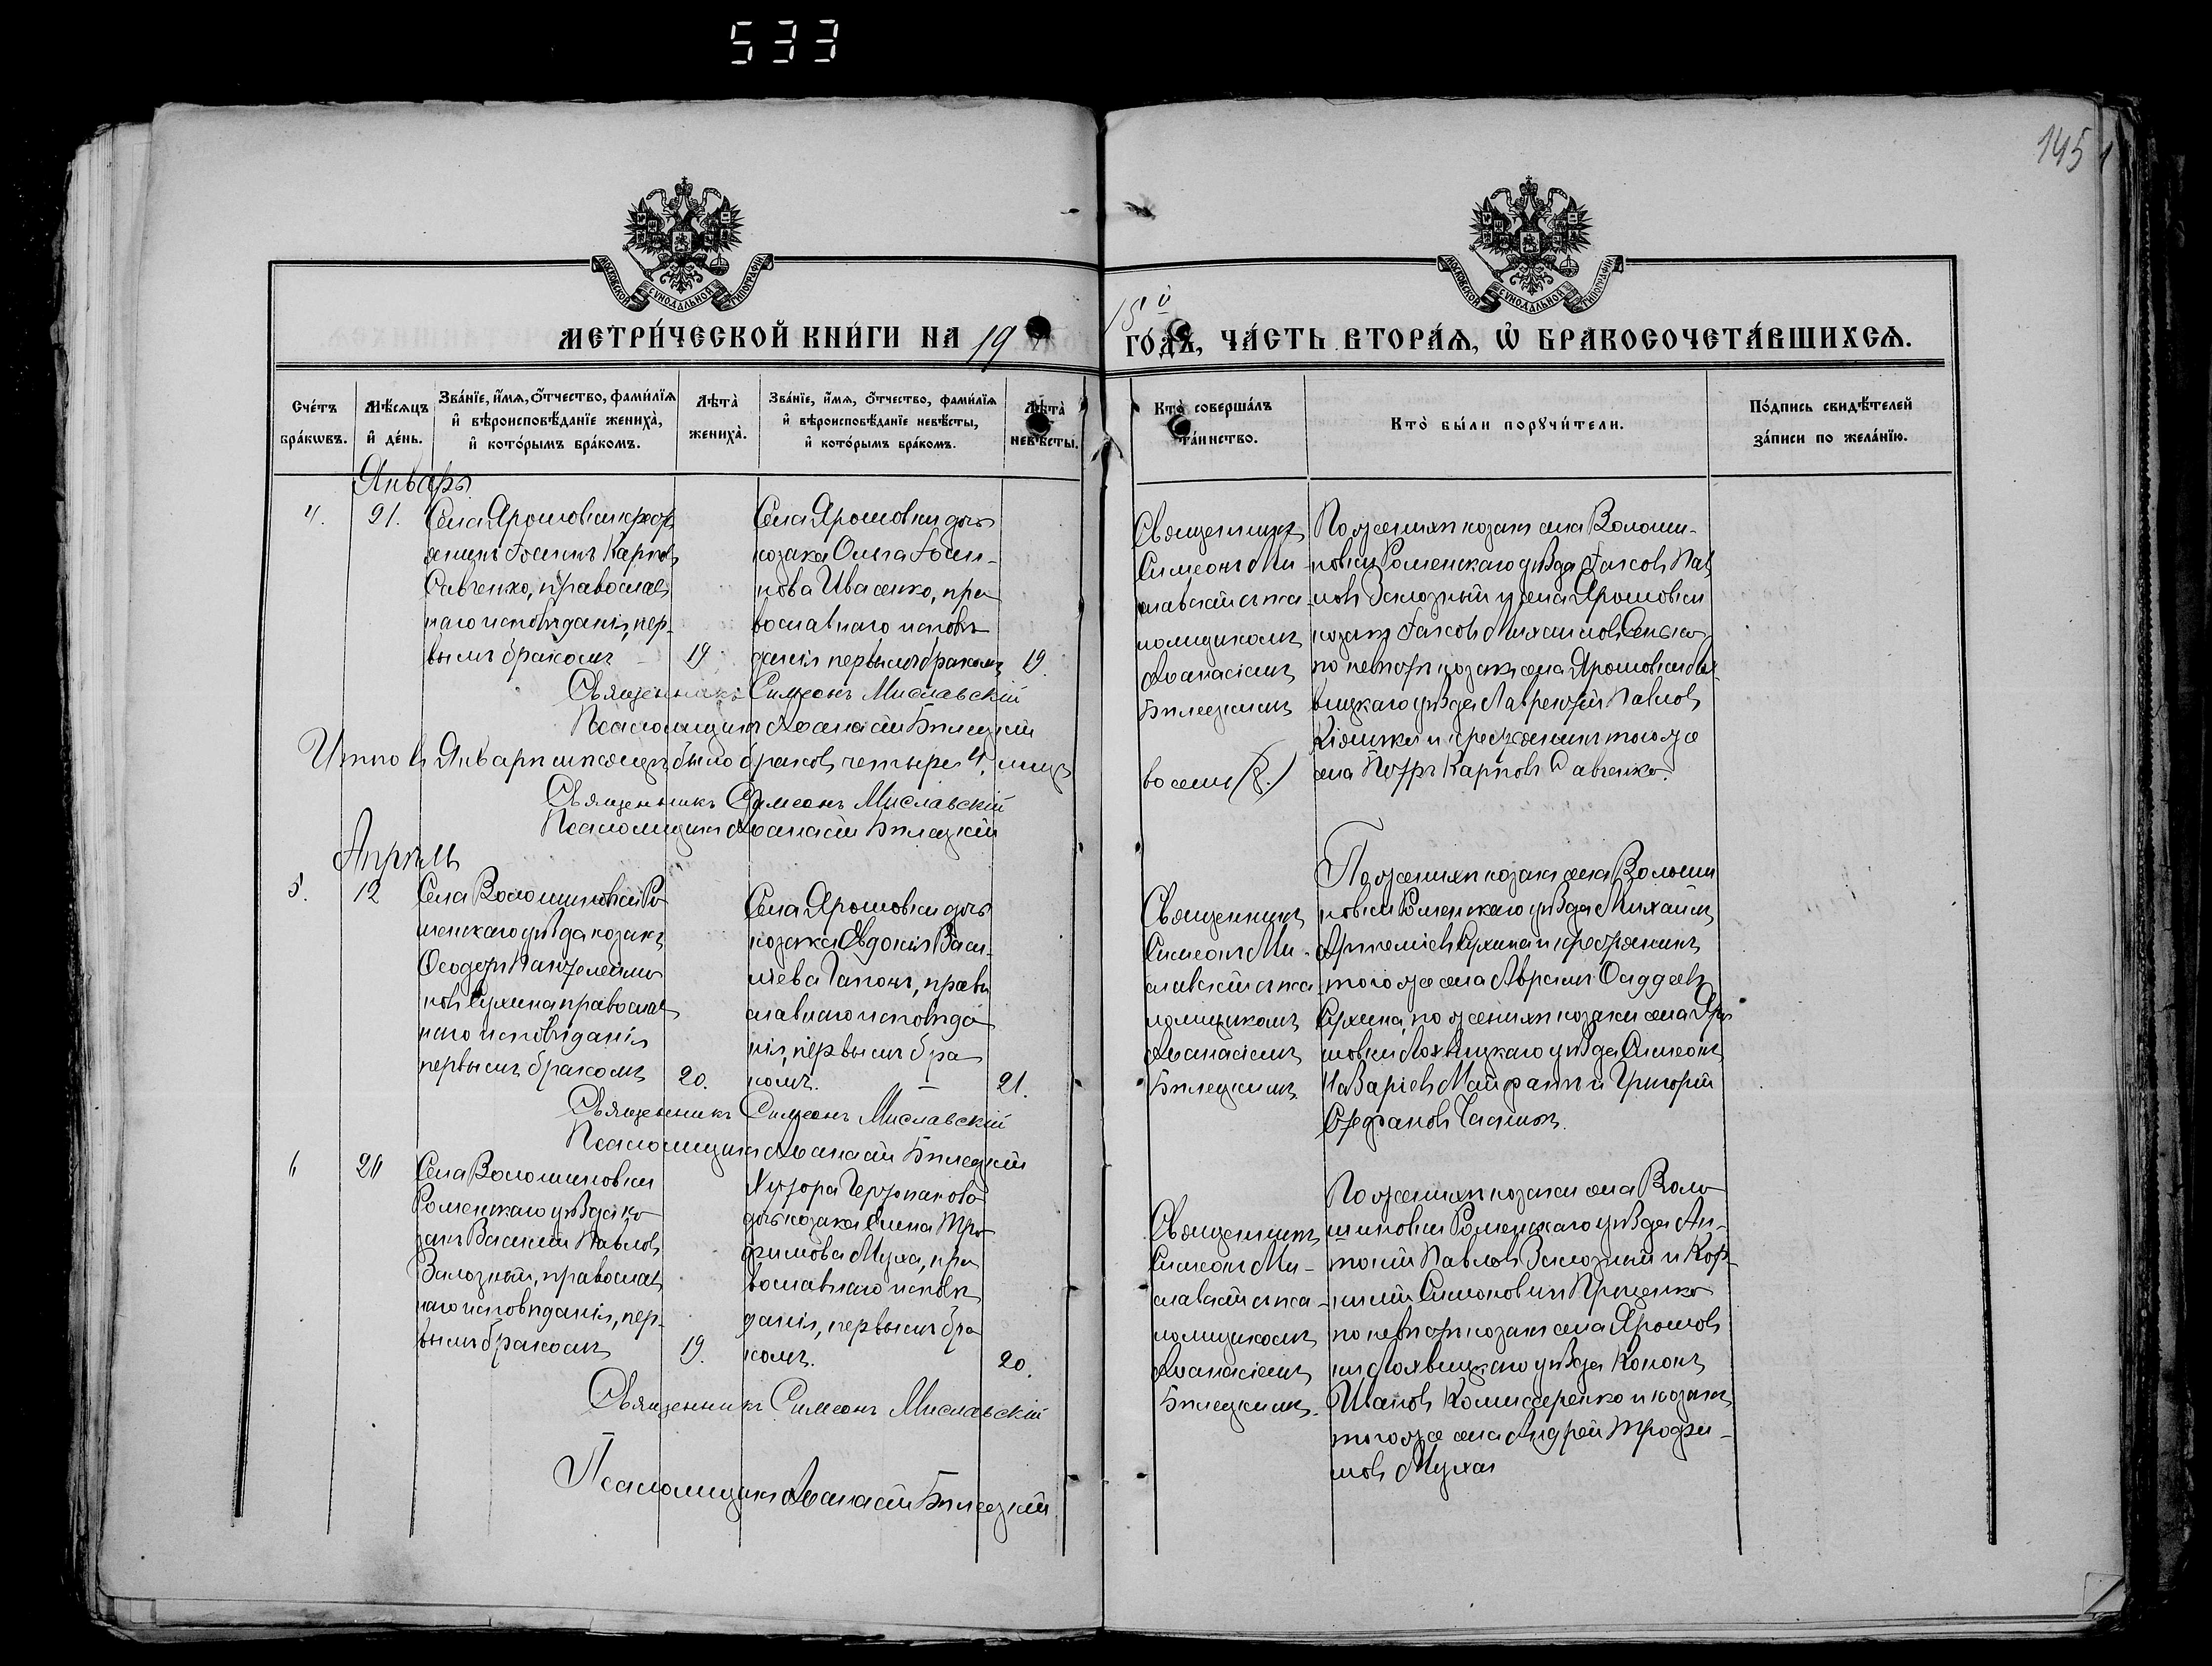 533
145
МОСКОВСКОЙ СѴНОДАЛЬНОЙ ТИПОГРАФІИ
МОСКОВСКОЙ СѴНОДАЛЬНОЙ ТИПОГРАФІИ
МЕТРИ́ЧЕСКОЙ КНИ́ГИ НА 19
15й ГО́ДЪ, ЧА́СТЬ ВТОРА́Ѧ, Ѡ҆ БРАКОСОЧЕТА́ВШИХСѦ.
Сче́тъ бра́кωвъ.
Мѣ́сѧцъ и҆ де́нь.
Зва́нїе, и҆́мѧ, ѻ҆́тчество, фами́лїѧ и҆ вѣроисповѣ́данїе жениха̀, и҆ кото́рымъ бра́комъ.
Лѣта̀ жениха̀.
Зва́нїе, и҆́мѧ, ѻ҆́тчество, фами́лїѧ и҆ вѣроисповѣ́данїе невѣ́сты, и҆ кото́рымъ бра́комъ.
Лѣта̀ невѣ́сты.
Кто̀ соверша́лъ та́инство.
Кто̀ бы́ли порꙋчи́тели.
По́дпись свидѣ́телей за́писи по жела́нїю.
Январь
4.
21.
Села Ярошовки крест
янинъ Іоаннъ Карпов
Савченко, православ
наго исповѣданія, пер-
вымъ бракомъ
19
Села Ярошовки дочь
козака Ольга Іоан-
нова Ивасенко, пра
вославнаго исповѣ
данія первымъ бракомъ
19.
Священникъ
Симеонъ Ми-
славскій съ пса-
ломщикомъ
Аѳанасіемъ
Билецкимъ
По женихѣ козаки села Волоши-
новки Роменскаго уѣзда Іаковъ Пав
ловъ Зилозный и села Ярошовки
козакъ Іаковъ Михаиловъ
по невѣстѣ козакъ села Ярошовки Лох-
вицкаго уѣзда Лаврентій Павловъ
и крестьянинъ того же
села Петръ Карповъ Савченко.
Священникъ Симеонъ Миславскій
Псаломщикъ Аѳанасій Билецкій
Итого въ Январѣ мѣсяцѣ было браковъ четыре 4, лицъ
восемь (8.)
Священникъ Симеонъ Миславскій
Псаломщикъ Аѳанасій Билецкій
Апрѣль
5.
12
Села Волошиновки Ро
менскаго уѣзда козакъ
Ѳеодотъ Пантелеимо
новъ Сухина православ
наго исповѣданія
первымъ бракомъ
20.
Села Ярошовки дочь
козака Евдокія Васи-
ліева Гапонъ, право
славнаго исповѣда
нія, первымъ бра
комъ.
21.
Священникъ
Симеонъ Ми-
славскій съ пса-
ломщикомъ
Аѳанасіемъ
Билецкимъ
По женихѣ козаки села Волоши
новки Роменскаго уѣзда Михаилъ
Артеміевъ Сухина и крестьянинъ
того же села Аврамъ Ѳаддеевъ
Сухина, по женихѣ козаки села Яро
шовки Лохвицкаго уѣзда Симеонъ
Назаріевъ и Григорій
Стефановъ
Священникъ Симеонъ Миславскій
Псаломщикъ Аѳанасій Билецкій
6
Села Волошиновки
Роменскаго уѣзда ко
закъ Василій Павловъ
Зилозный, православ
наго исповѣданія, пер-
вымъ бракомъ
19.
Хутора
дочь козака Елена Тро
фимова Муха, пра
вославнаго исповѣ
данія, первымъ бра
комъ.
20.
Священникъ
Симеонъ Ми-
славскій съ пса-
ломщикомъ
Аѳанасіемъ
Билецкимъ.
По женихѣ козаки села Воло
шиновки Роменскаго уѣзда Ан-
тоній Павловъ Зилозный и Кор-
нилій Симоновичъ Проценко
по невѣстѣ козакъ села Ярошов
ки Лохвицкаго уѣзда Кононъ
Ивановъ Комисаренко и козакъ
того же села Андрей Трофи-
мовъ Муха
Священникъ Симеонъ Миславскій
Псаломщикъ Аѳанасій Билецкій